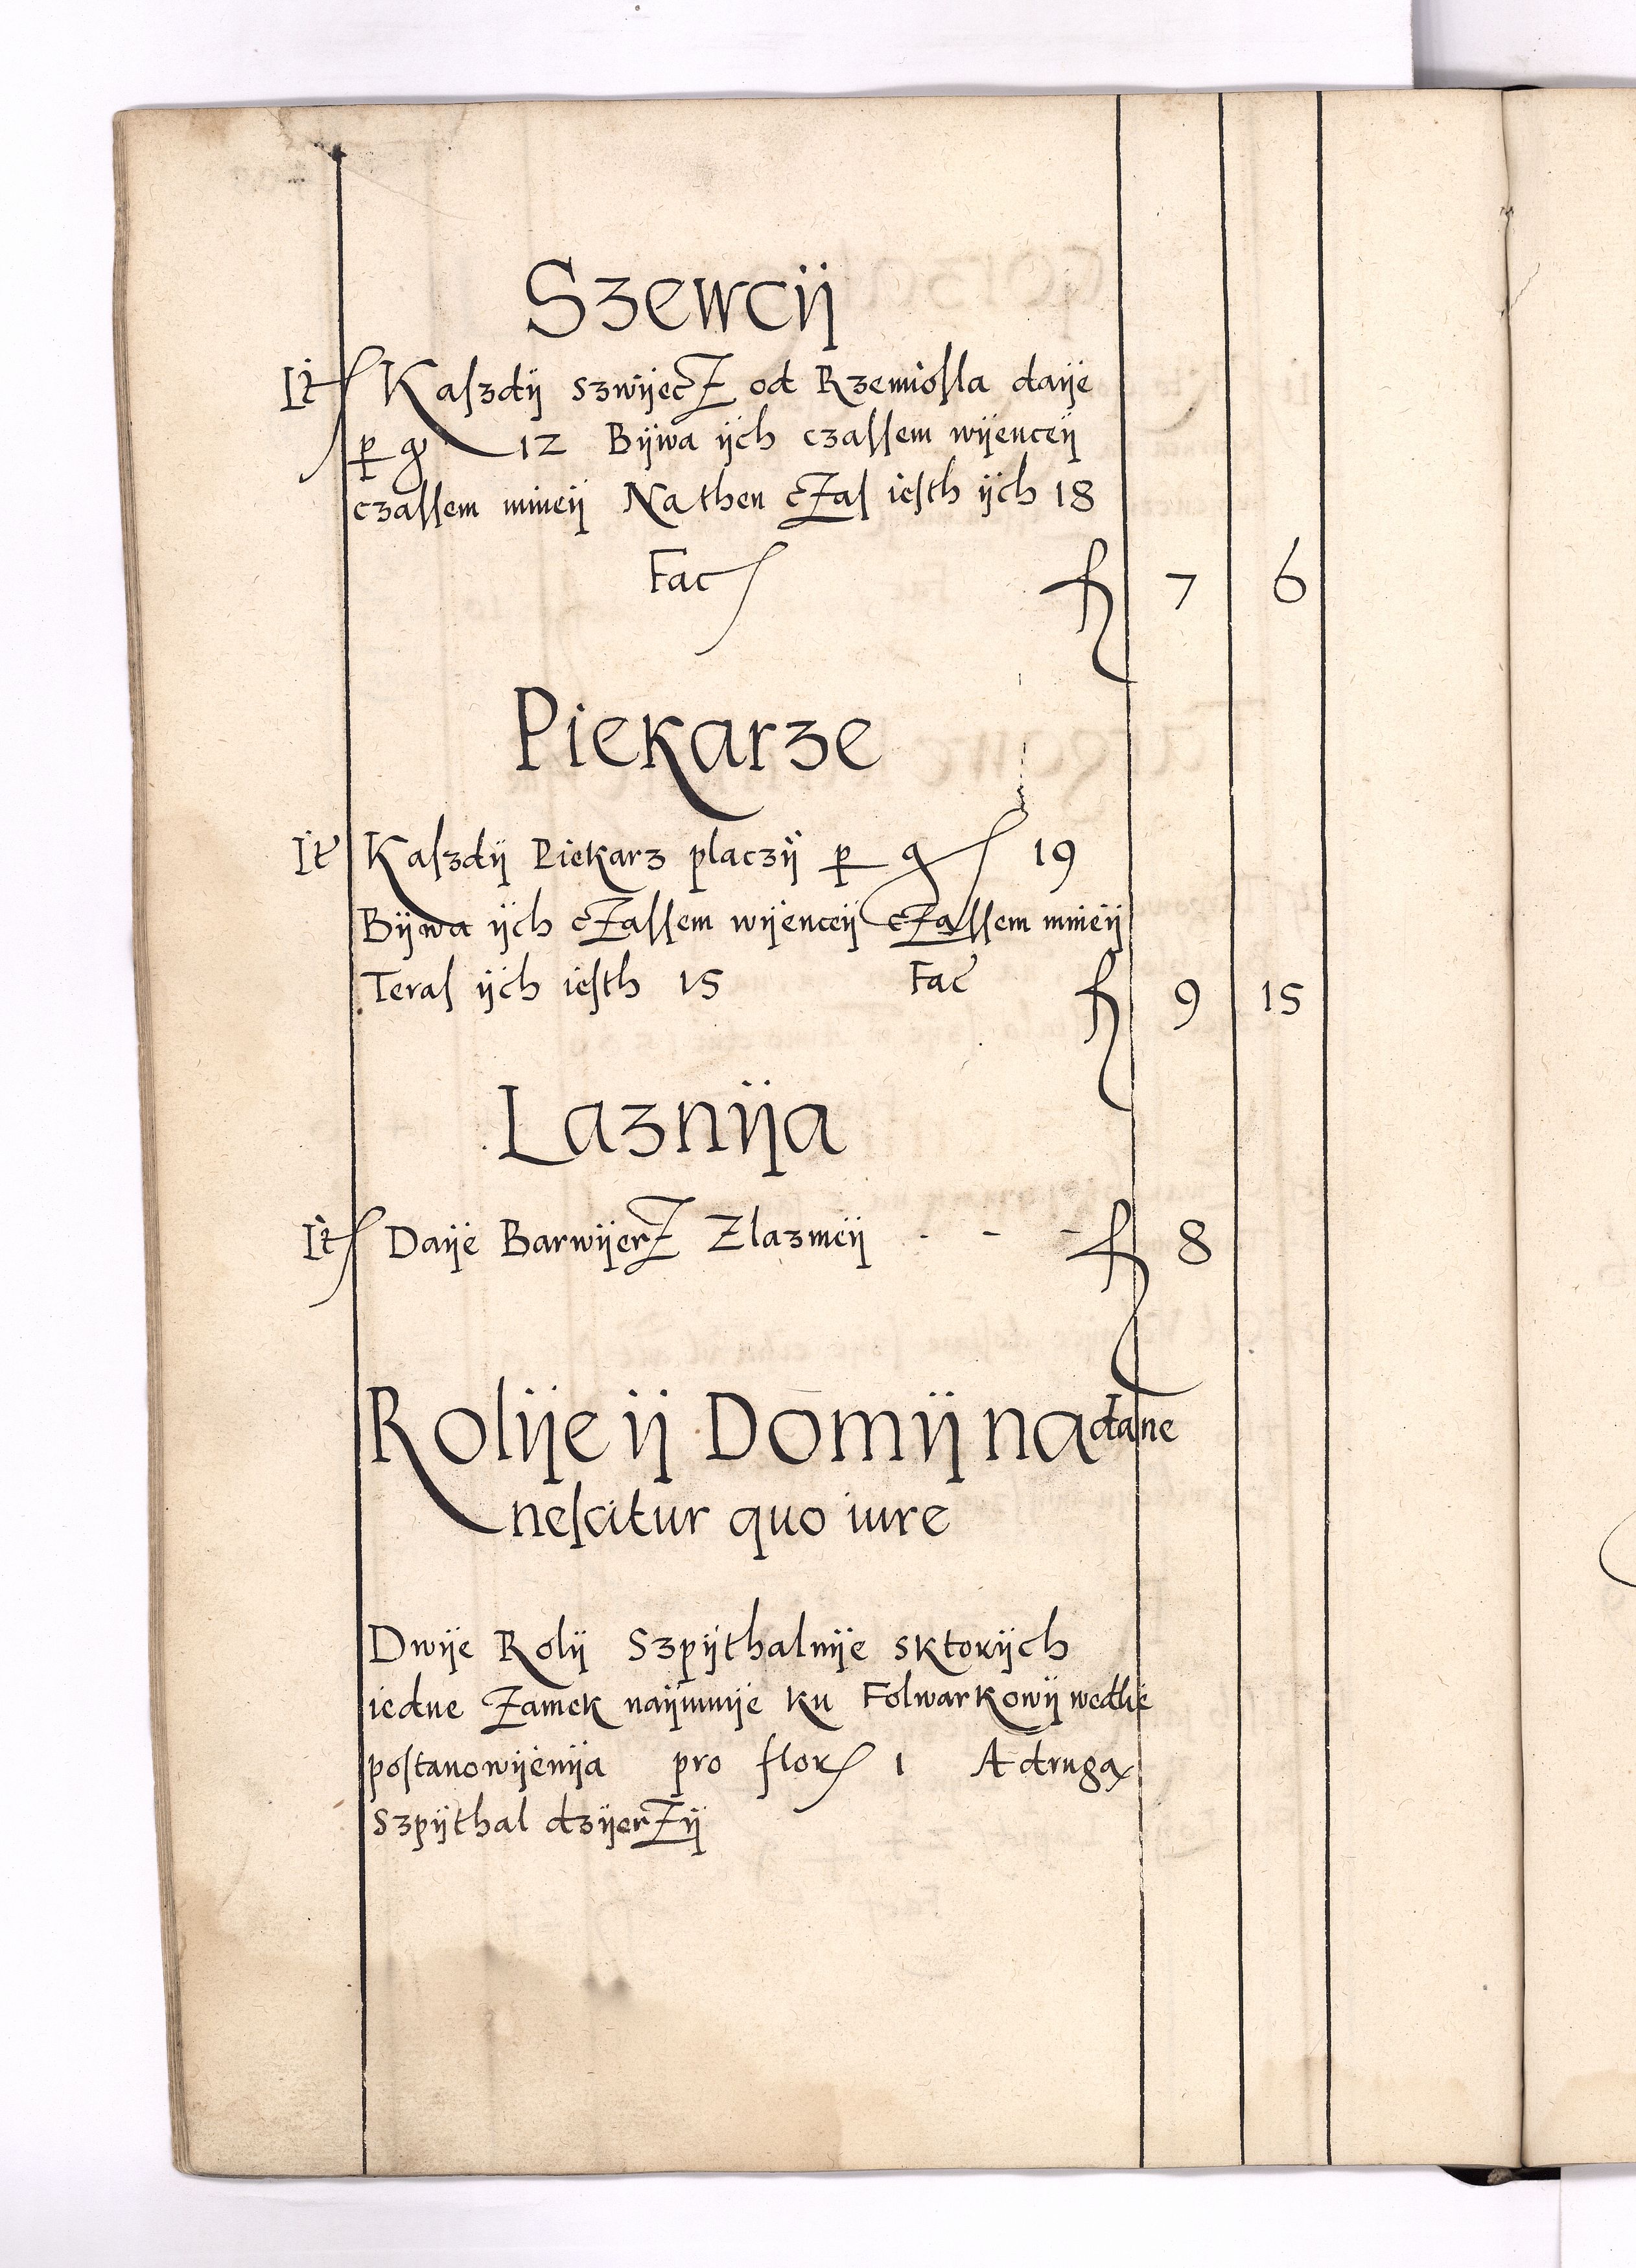 Szewcÿ
It Kaſzdÿ szwÿecz od Rzemioſla daÿe
per gr 12 Bÿwa ÿch czaſſem wÿenceÿ
czaſſem mnieÿ Na then czaſ ieſth ÿch 18
Fac fl 7 6
Piekarze
It Kaſzdÿ Piekarz placzÿ per gr 19
Bÿwa ÿch czaſſem wÿenceÿ czaſſem mnieÿ
Teraſ ÿch ieſth 15 Fac fl 9 15
Laznÿa
It Daÿe Barwÿerz Zlaznieÿ - - - fl 8
Rolÿe ÿ Domÿ nadane
neſcitur quo iure
Dwÿe Rolÿ Szpÿthalnÿe sktorÿch
iedne Zamek naÿmuÿe ku Folwarkowÿ wedlie
poſtanowÿenÿa pro flor 1 A drugą
Szpÿthal dzÿerzÿ